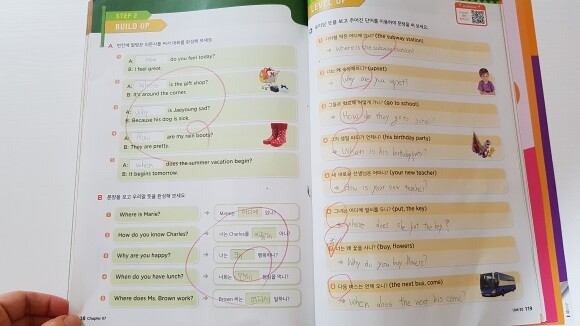 STEP 2
BUILD UP
A 빈칸에 알맞은 의문사를 써서 대화를 완성해 보세요.
A: How do you feel today?
B: I feel great.
A: Where is the gift shop?
B: It's around the corner.
A: Why is Jaeyoung sad?
B: Because his dog is sick.
A: How are my rain boots?
B: They are pretty.
A: When does the summer vacation begin?
B: It begins tomorrow.
B 문장을 보고 우리말 뜻을 완성해 보세요.
Where is Marie? → Marie는 어디에 있니?
How do you know Charles? → 너는 Charles를 어떻게 아니?
Why are you happy? → 너는 왜 행복하니?
When do you have lunch? → 너희는 언제 점심을 먹니?
Where does Ms. Brown work? → Brown 씨는 어디에서 일하니?
Chapter 07
LEVEL UP
우리말 뜻을 보고 주어진 단어를 이용하여 문장을 써 보세요.
지하철 역은 어디에 있니? (the subway station)
→ Where is the subway station?
너는 왜 속상해하니? (upset)
→ Why are you upset?
그들은 학교에 어떻게 가니? (go to school)
→ How do they go to
그의 생일 파티가 언제니? (his birthday party)
→ When is his birthday party?
새로운 선생님은 어떠니? (your new teacher)
→ How is your new teacher?
그녀는 어디에 열쇠를 두니? (put, the key)
→ Where does she put the key?
너는 왜 꽃을 사니? (buy, flowers)
→ Why do you buy flowers?
다음 버스는 언제 오니? (the next bus, come)
→ When does the next bus come?
Unit 03 119